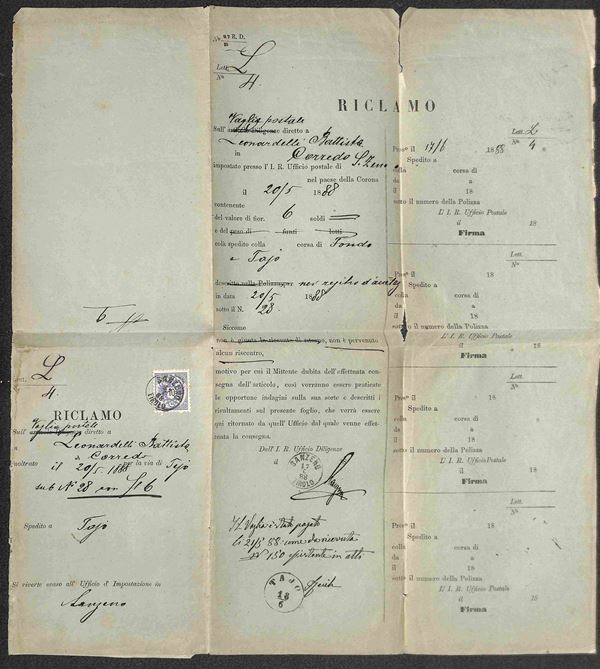 No 27 R. D.
18
Lett. L
No 4.
RICLAMO
Vaglia postale
Sull' diretto a
Leonardelli Battista
in Corredo S. Zeno
impostato presso l' I. R. Ufficio postale di
nel paese della Corona
il 20/5 1888
contenente
del valore di fior. 6 soldi
e del peso di funti lotti
colà spedito colla corsa di Fondo
e Tajo
descritto nella Polizza nel
in data 20/5 1888
sotto il N. 28.
Siccome
non è giunta la ricevuta di ritorno, non è pervenuto
alcun riscontro,
motivo per cui il Mittente dubita dell' effettuata con-
segna dell' articolo, così vorranno essere praticate
le opportune indagini sulla sua sorte e descritti i
risultamenti sul presente foglio, che verrà essere
quì ritornato da quell' Ufficio dal quale venne effet-
tuata la consegna.
Dell' I. R. Ufficio Diligenze
SANZENO
17
6
88
TIROLO
Il Vaglia è stato pagato
li 21/5 88 come da ricevuta
No 150 esistente in atti
TAJO
18
6
Lett. L
No 4
Pres° il 17/6 1888
Spedito a
colla corsa di
da a
il 18
sotto il numero della Polizza
L' I. R. Ufficio Postale
il 18
Firma
Lett.
No
Pres° il 18
Spedito a
colla corsa di
da a
il 18
sotto il numero della Polizza
L' I. R. Ufficio Postale
il 18
Firma
Lett.
No
Pres° il 18
Spedito a
colla corsa di
da a
il 18
sotto il numero della Polizza
L' I. R. Ufficio Postale
il 18
Firma
Lett.
No
Pres° il 18
Spedito a
colla corsa di
da a
il 18
sotto il numero della Polizza
L' I. R. Ufficio Postale
il 18
Firma
Lett. L
4.
SANZENO
TIROLO
RICLAMO
Vaglia postale
Sull' diretto a
a Leonardelli Battista
a Corredo
Inoltrato il 20/5 1888 per la via di Tajo
sub No 28 con f 6
Spedito a Tajo
Si riverte ocaso all' Ufficio d' Impostazione in
Sanzeno